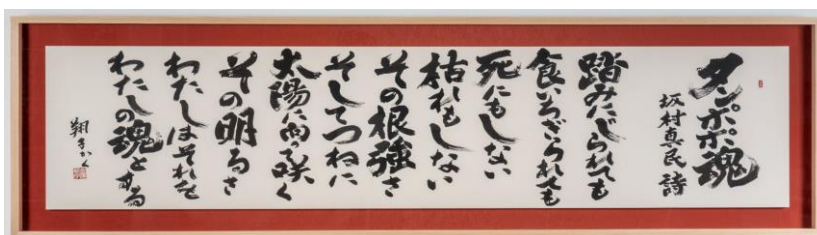 タンポポ魂
坂村真民 詩
踏みにじられても
食いちぎられても
死にもしない
枯れもしない
その根強さ
そしてつねに
太陽に向って咲く
その明るさ
わたしはそれを
わたしの魂とする
翔子かく